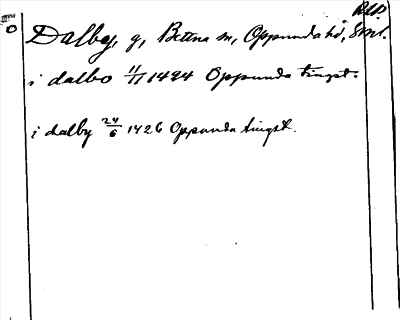 RLP.
Dalby, g, Bettna sn, Oppunda hd, Sml.
i dalbo 11/1 1494 Oppunda tingst.
i dalby 24/6 1426 Oppunda tingst.